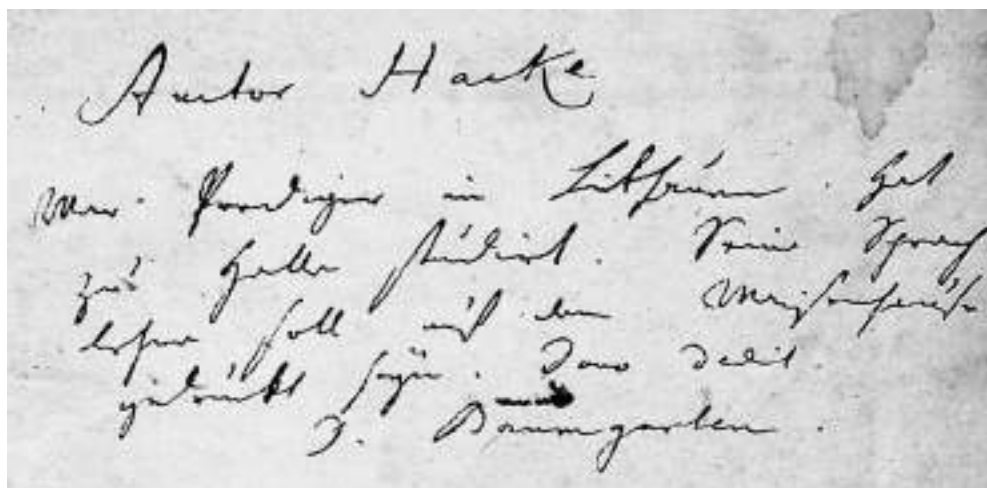 Autor Haeke
War Prediger in Litthauen. Hat
zu Halle studirt. Seine Sprach
lehre soll auf dem Waysenhause
gedrukt seyn. Dono dedit
J. Baumgarten.